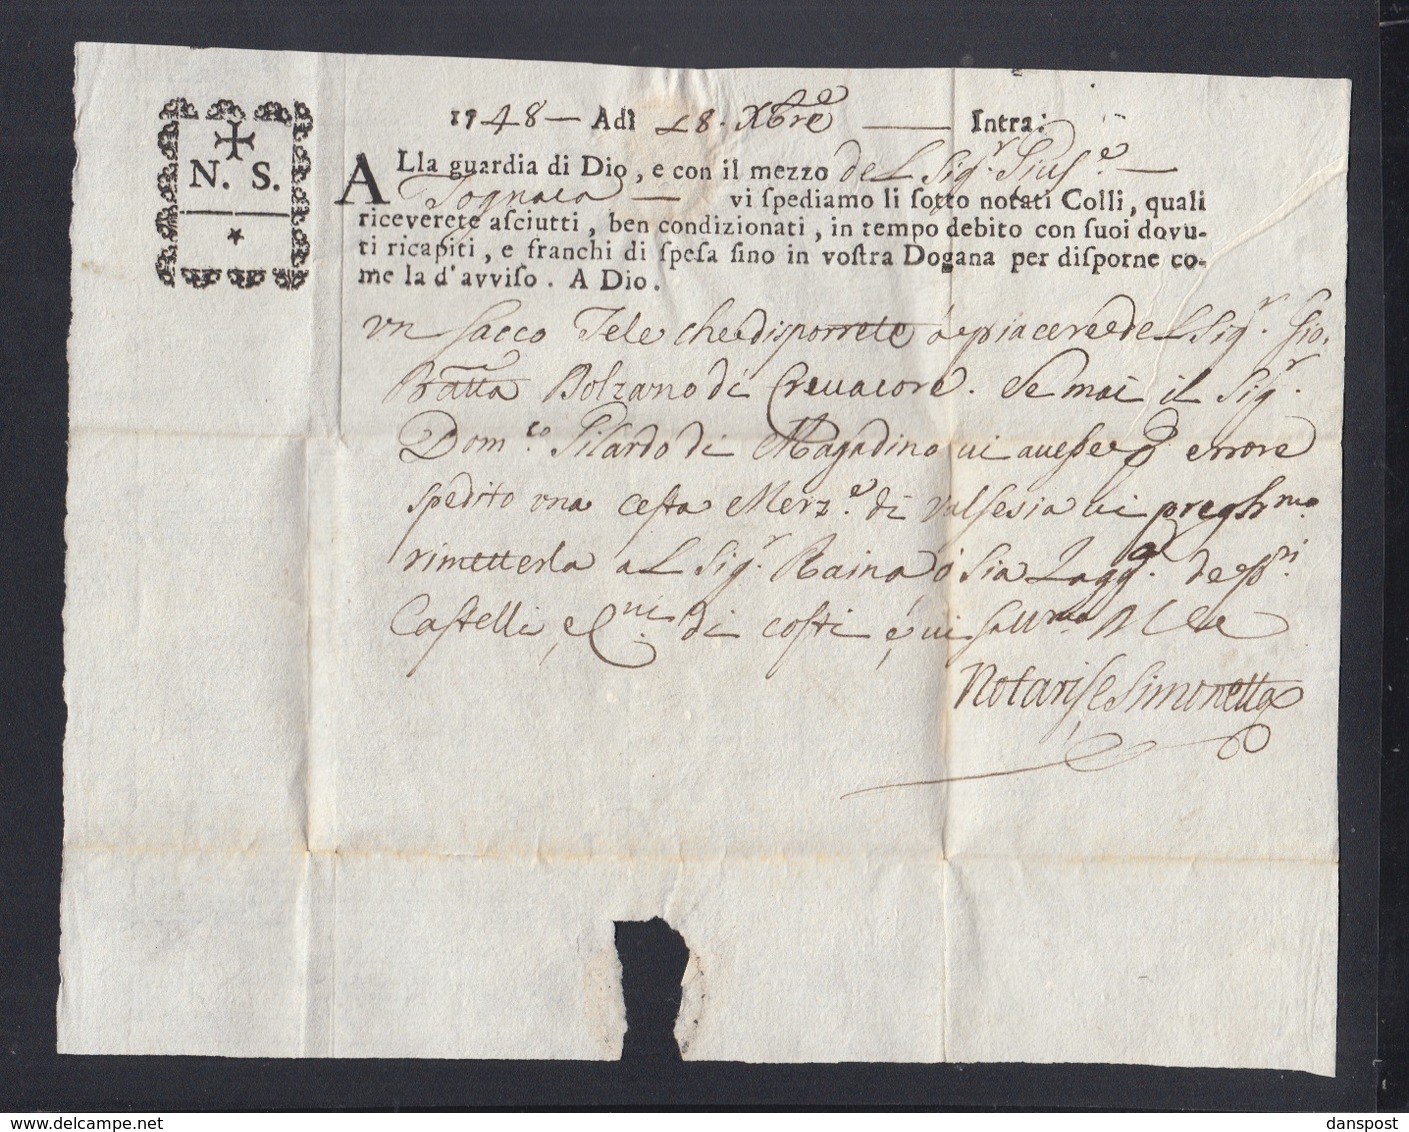 N. S.
*
1748 — Adì 18. Xbre — Intra:
ALla guardia di Dio, e con il mezzo del Sig.r Gius.e —
Tognaca — vi ſpediamo li ſotto notati Colli, quali
riceverete aſciutti, ben condizionati, in tempo debito con ſuoi dovu-
ti ricapiti, e franchi di ſpeſa ſino in voſtra Dogana per diſporne co-
me la d'avviſo. A Dio.
vn sacco Tele che disporrete a piacere del Sig.r Gio.
Batta Bolzano di Crevacore. Se mai il Sig.r
Dom.co Pilardo di Magadino vi avesse errore
spedito vna cesta Merz.e di Valsesia vi pregh.mo
rimetterla al Sig.r Raina, ò sia Lagg.
Castelli, di costi, e vi
Notaris e Simonetta
danspost